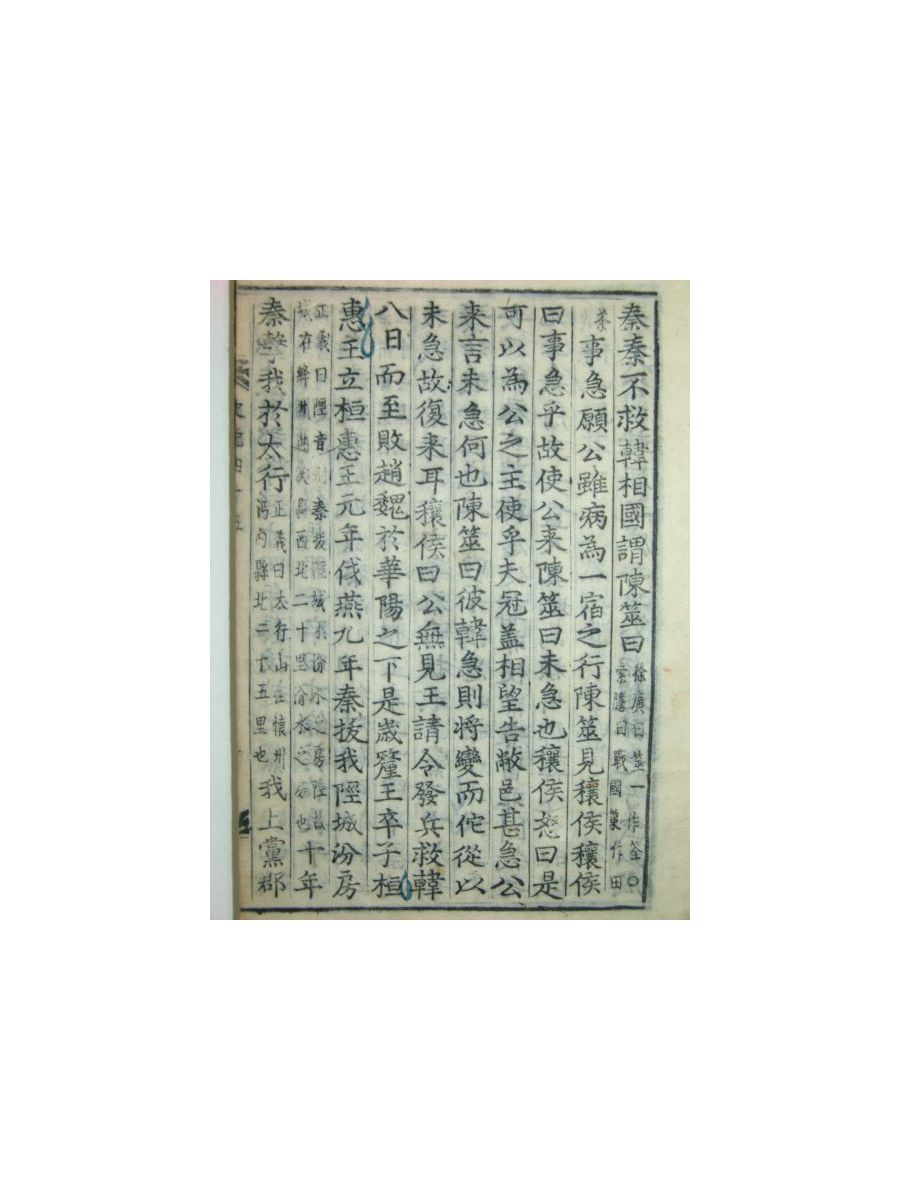 秦秦不救韓相國謂陳筮曰徐廣曰筮一作筌○索隱曰戰國策作田
茶事急願公雖病為一宿之行陳筮見穰侯穰侯
曰事急乎故使公来陳筮曰未急也穰侯怒曰是
可以為公之主使乎夫冠盖相望告敝邑甚急公
来言未急何也陳筮曰彼韓急則將變而佗從以
未急故復来耳穰侯曰公無見王請令發兵救韓
八日而至敗趙魏於華陽之下是歲釐王卒子桓
惠王立桓惠王元年伐燕九年秦拔我陘城汾房
正義曰陘音 秦拔陘城 汾水之房陘故城在絳州 縣西北二十里汾水之 也十年
秦擊我於太行正義曰太行山在懷州河内縣北二十五里也我上黨郡